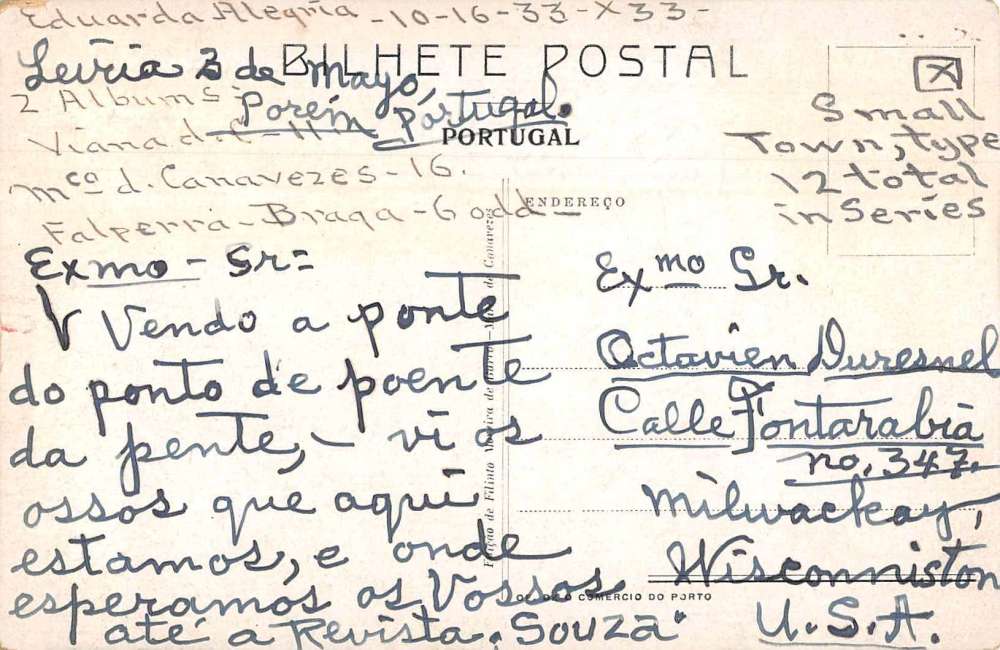 Eduarda Alegria - 10-16-33-X33-
BILHETE POSTAL
Leiria 3 de Mayo,
Porém, Pórtugal.
PORTUGAL
2 Albums:
Viana d.
Mco d. Canavezes - 16.
Falperra - Braga - 6 odd -
Small
Town, type
12 total
in Series
ENDEREÇO
Exmo - Sr=
V Vendo a ponte
do ponto de poente
da pente, - vi os
ossos que aqui
estamos, e onde
esperamos os Vossos
até a Revista "Souza"
Exmo Sr.
Octavien Duresnel
Calle Fontarabia
no, 347.
Milwackay,
Wisconniston
U.S.A.
Edição de Filinto
de Canavezes
COMERCIO DO PORTO